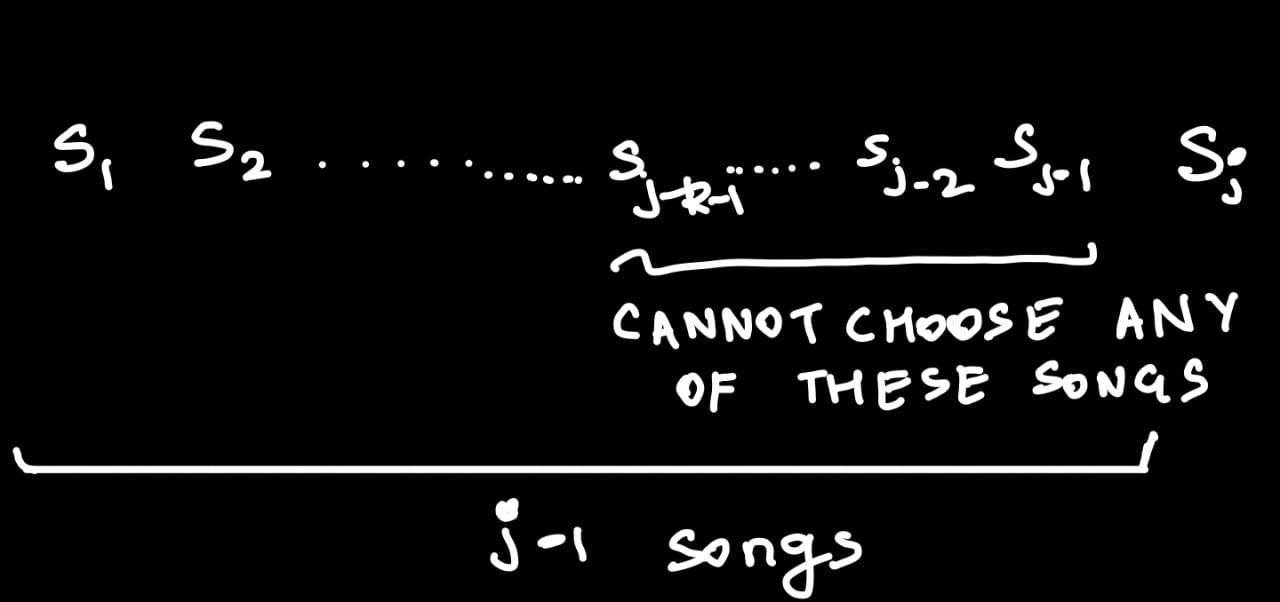 S₁ S₂ . . . . . ...... Sⱼ₋ₖ₋₁ ...... Sⱼ₋₂ Sⱼ₋₁ Sⱼ
CANNOT CHOOSE ANY
OF THESE SONGS
j-1 songs